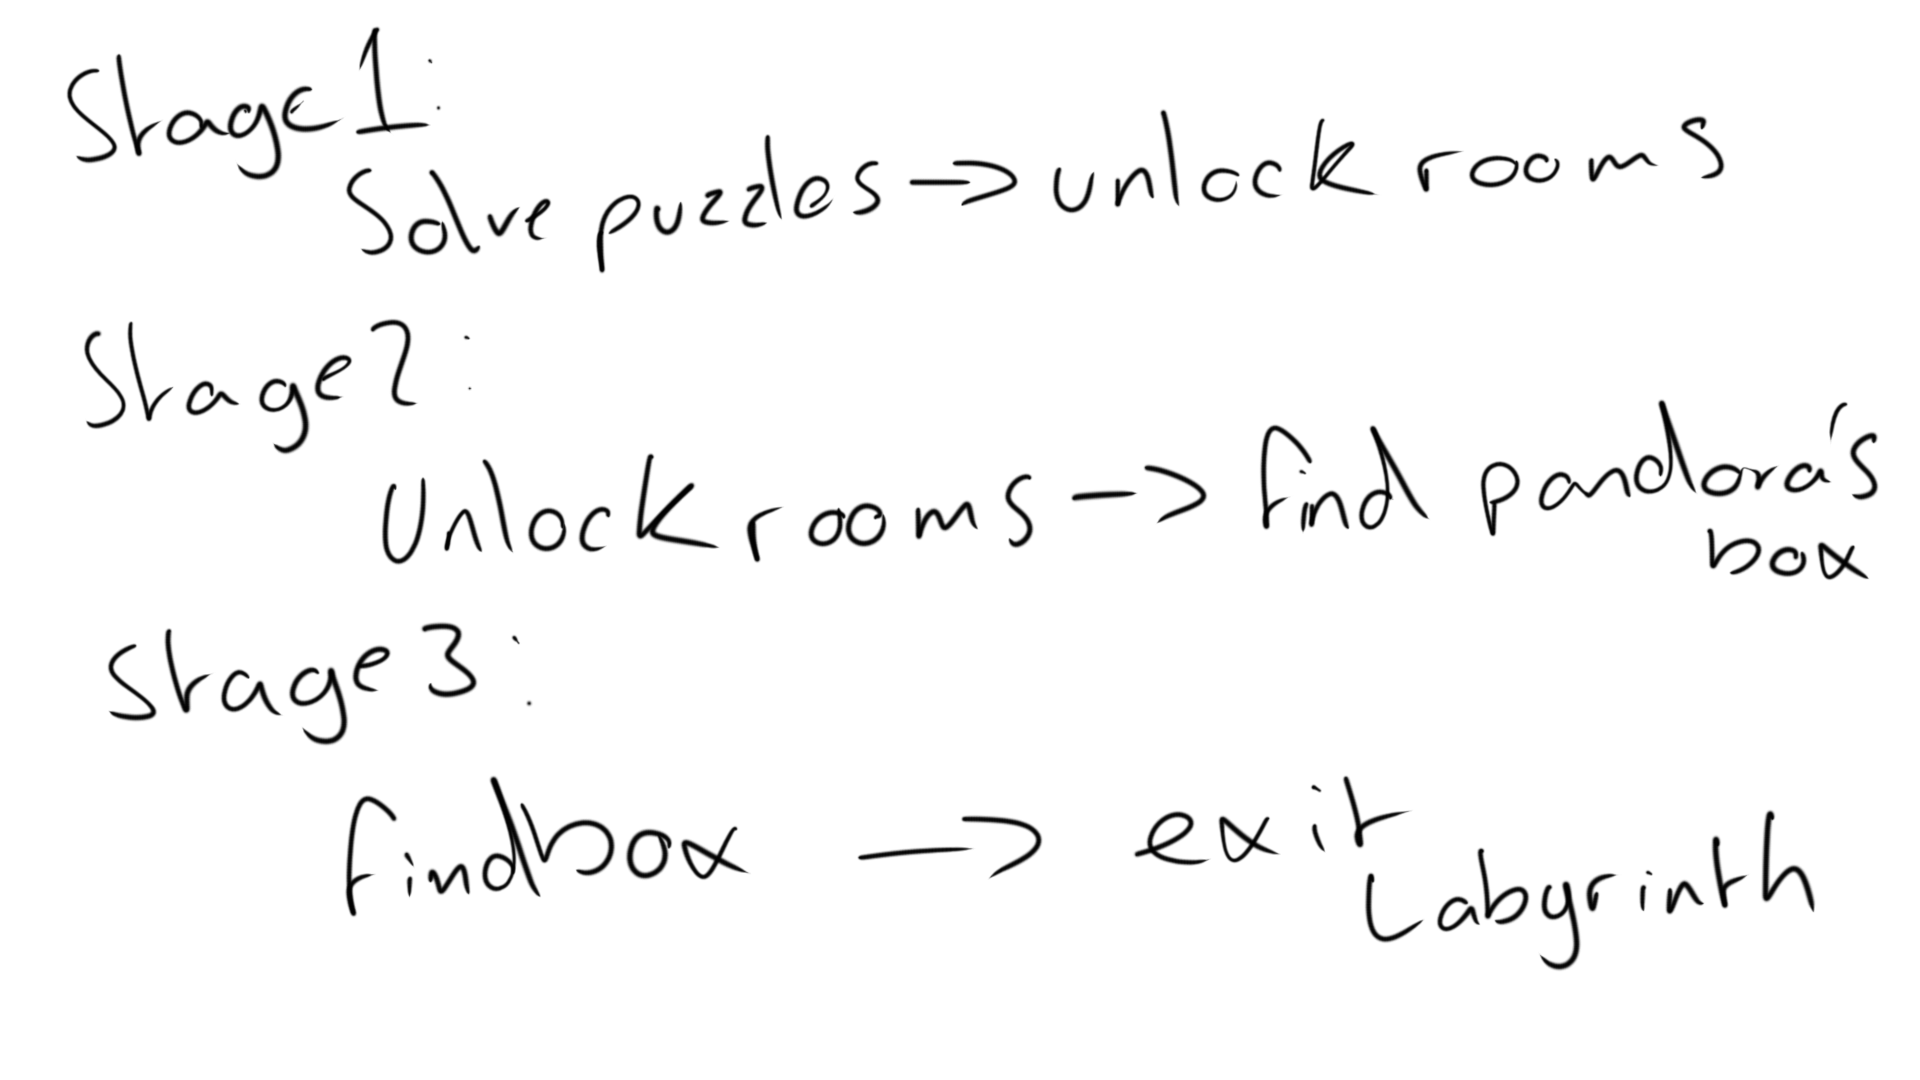 Stage 1:
Solve puzzles → unlock rooms
Stage 2:
Unlock rooms → find pandora's
box
Stage 3:
find box → exit
Labyrinth